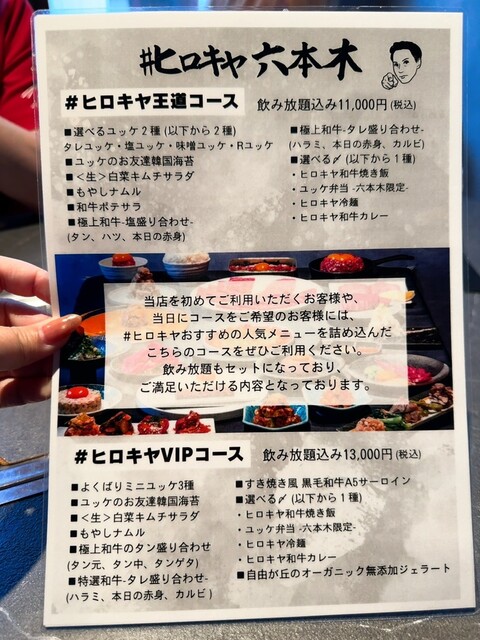 #ヒロキヤ 六本木
#ヒロキヤ王道コース 飲み放題込み11,000円(税込)
■選べるユッケ2種(以下から2種)
タレユッケ・塩ユッケ・味噌ユッケ・Rユッケ
■ユッケのお友達韓国海苔
■＜生＞白菜キムチサラダ
■もやしナムル
■和牛ポテサラ
■極上和牛-塩盛り合わせ-
(タン、ハツ、本日の赤身)
■極上和牛-タレ盛り合わせ-
(ハラミ、本日の赤身、カルビ)
■選べる〆(以下から1種)
・ヒロキヤ和牛焼き飯
・ユッケ弁当 -六本木限定-
・ヒロキヤ冷麺
・ヒロキヤ和牛カレー
当店を初めてご利用いただくお客様や、
当日にコースをご希望のお客様には、
#ヒロキヤおすすめの人気メニューを詰め込んだ
こちらのコースをぜひご利用ください。
飲み放題もセットになっており、
ご満足いただける内容となっております。
#ヒロキヤVIPコース 飲み放題込み13,000円(税込)
■よくばりミニユッケ3種
■ユッケのお友達韓国海苔
■＜生＞白菜キムチサラダ
■もやしナムル
■極上和牛のタン盛り合わせ
(タン元、タン中、タンゲタ)
■特選和牛-タレ盛り合わせ-
(ハラミ、本日の赤身、カルビ)
■すき焼き風 黒毛和牛A5サーロイン
■選べる〆(以下から1種)
・ヒロキヤ和牛焼き飯
・ユッケ弁当 -六本木限定-
・ヒロキヤ冷麺
・ヒロキヤ和牛カレー
■自由が丘のオーガニック無添加ジェラート